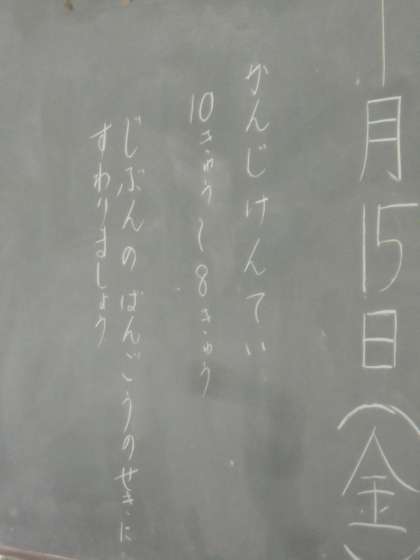 月15日(金)
かんじけんてい
10きゅう〜8きゅう
じぶんのばんごうのせきに
すわりましょう